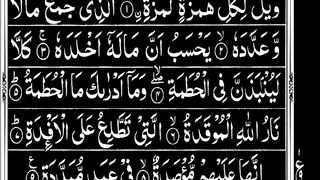 وَيْلٌ لِّكُلِّ هُمَزَةٍ لُّمَزَةِ ۙ﴿۱﴾ الَّذِىْ جَمَعَ مَالًا
وَّعَدَّدَهٗ ۙ﴿۲﴾ يَحْسَبُ اَنَّ مَالَهٗۤ اَخْلَدَهٗ ۚ﴿۳﴾ كَلَّا
لَيُنْۢبَذَنَّ فِى الْحُطَمَةِ ۖ﴿۴﴾ وَمَاۤ اَدْرٰىكَ مَا الْحُطَمَةُ ؕ﴿۵﴾
نَارُ اللّٰهِ الْمُوْقَدَةُ ۙ﴿۶﴾ الَّتِىْ تَطَّلِعُ عَلَى الْاَفْـِٕدَةِ ؕ﴿۷﴾
اِنَّهَا عَلَيْهِمْ مُّؤْصَدَةٌ ۙ﴿۸﴾ فِىْ عَمَدٍ مُّمَدَّدَةٍ ﴿۹﴾